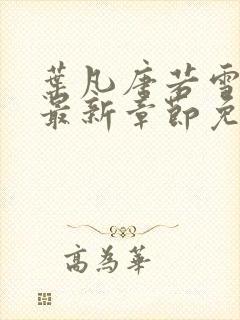 葉凡唐若雪
最新章節免
高為華